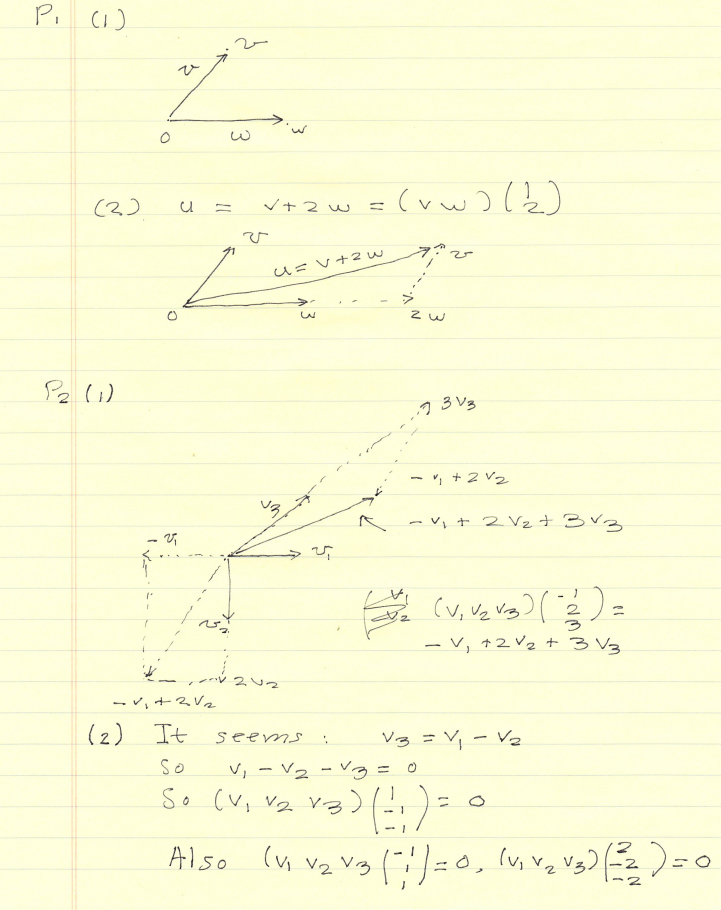 P1 (1)
v
v
0 w w
(2) u = v + 2 w = (v w) (1 2)
v
u = v + 2w
v
0 w 2 w
P2 (1)
3 v3
- v1 + 2 v2
v3
- v1 + 2 v2 + 3 v3
- v1
v1
(v1 v2 v3) (-1 2 3) =
v2
- v1 + 2 v2 + 3 v3
2 v2
- v1 + 2 v2
(2) It seems : v3 = v1 - v2
So v1 - v2 - v3 = 0
So (v1 v2 v3) (1 -1 -1) = 0
Also (v1 v2 v3 (-1 1 1) = 0, (v1 v2 v3) (2 -2 -2) = 0